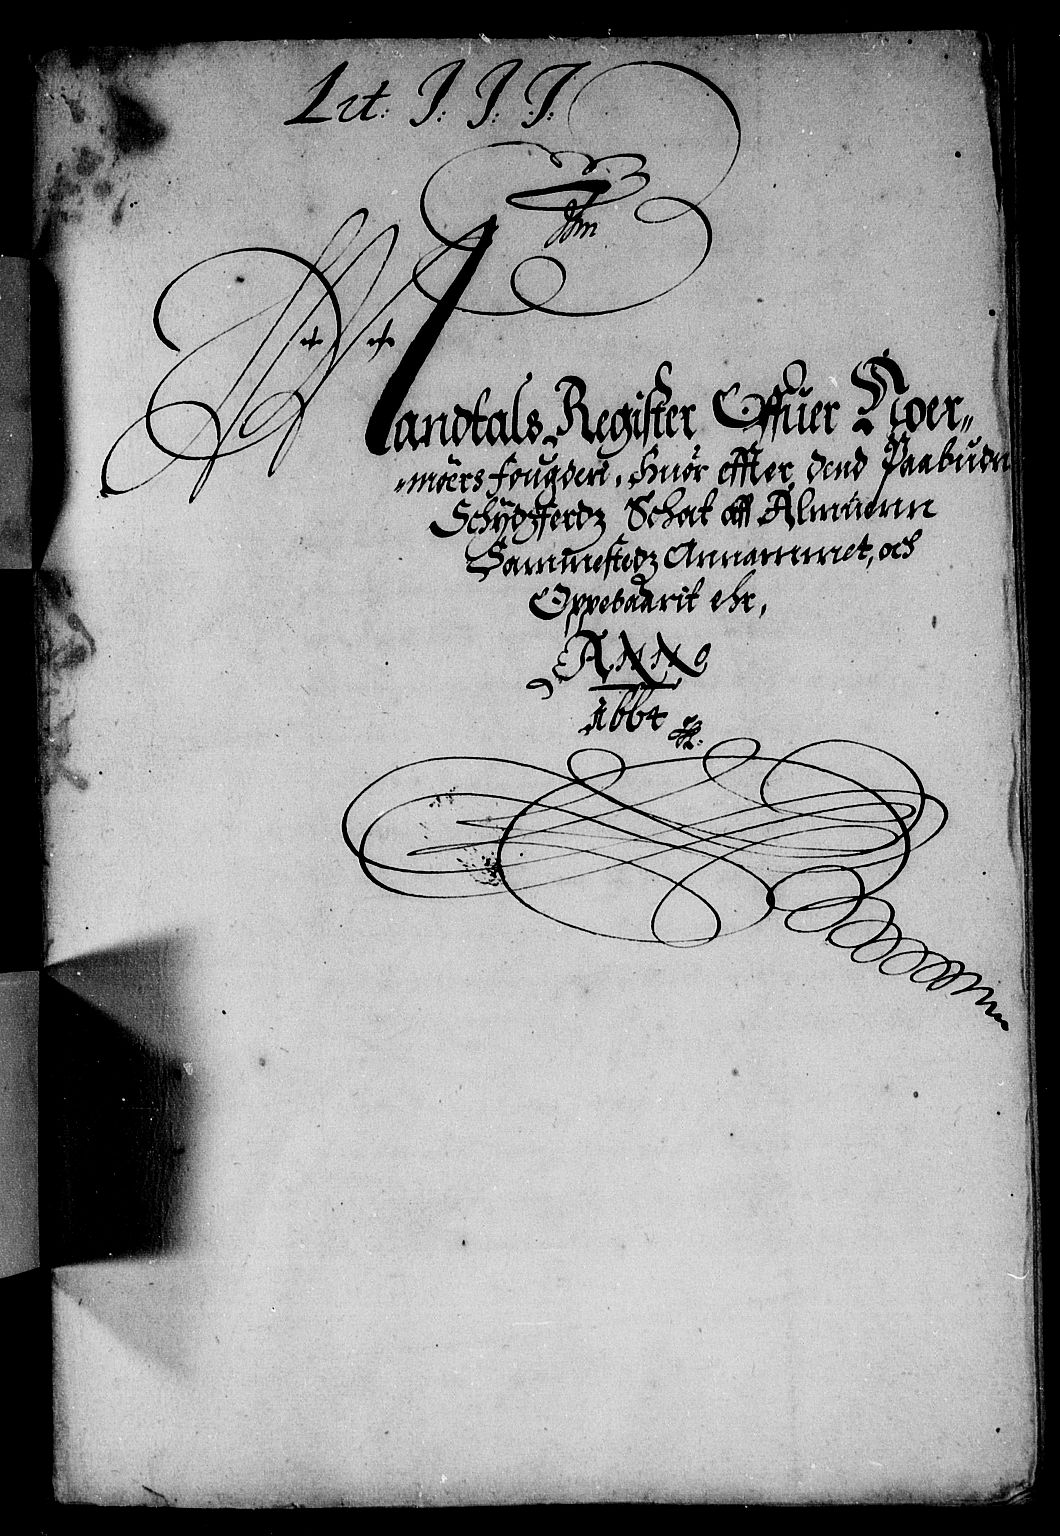 Lit: J: J: J:
Mandtals Register Offuer Noer„
„möers fougderi, Huor effter dend Paabudne
Schÿdzferdz Schat aff Almuenn
Sammestedz Annammet, och
Oppebaarit ehr,
ANNO
1664